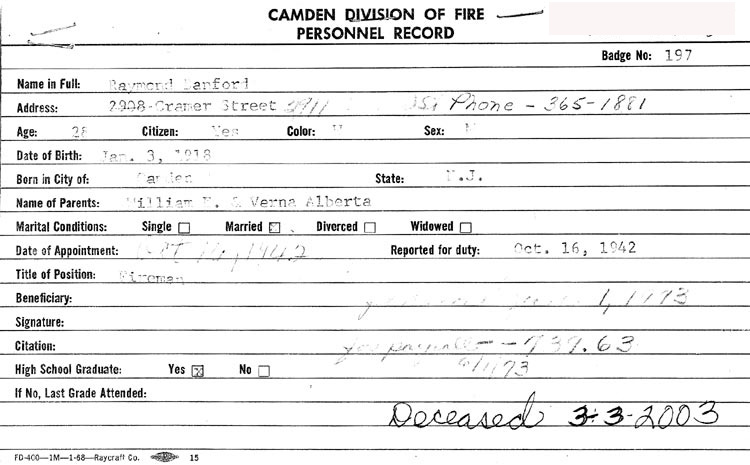 CAMDEN DIVISION OF FIRE
PERSONNEL RECORD
Badge No: 197
Name in Full: Raymond Lanford
Address: 2908 Cramer Street Phone - 365-1881
Age: 28 Citizen: Yes Color: Sex:
Date of Birth: Jan. 3, 1918
Born in City of: Camden State: N.J.
Name of Parents: William & Verna Alberta
Marital Conditions: Single Married Divorced Widowed
Date of Appointment: 1942 Reported for duty: Oct. 16, 1942
Title of Position: Fireman
Beneficiary:
Signature:
Citation: 939.63
High School Graduate: Yes No
If No, Last Grade Attended:
Deceased 3-3-2003
FD-400—1M—1-68—Raycraft Co. 15